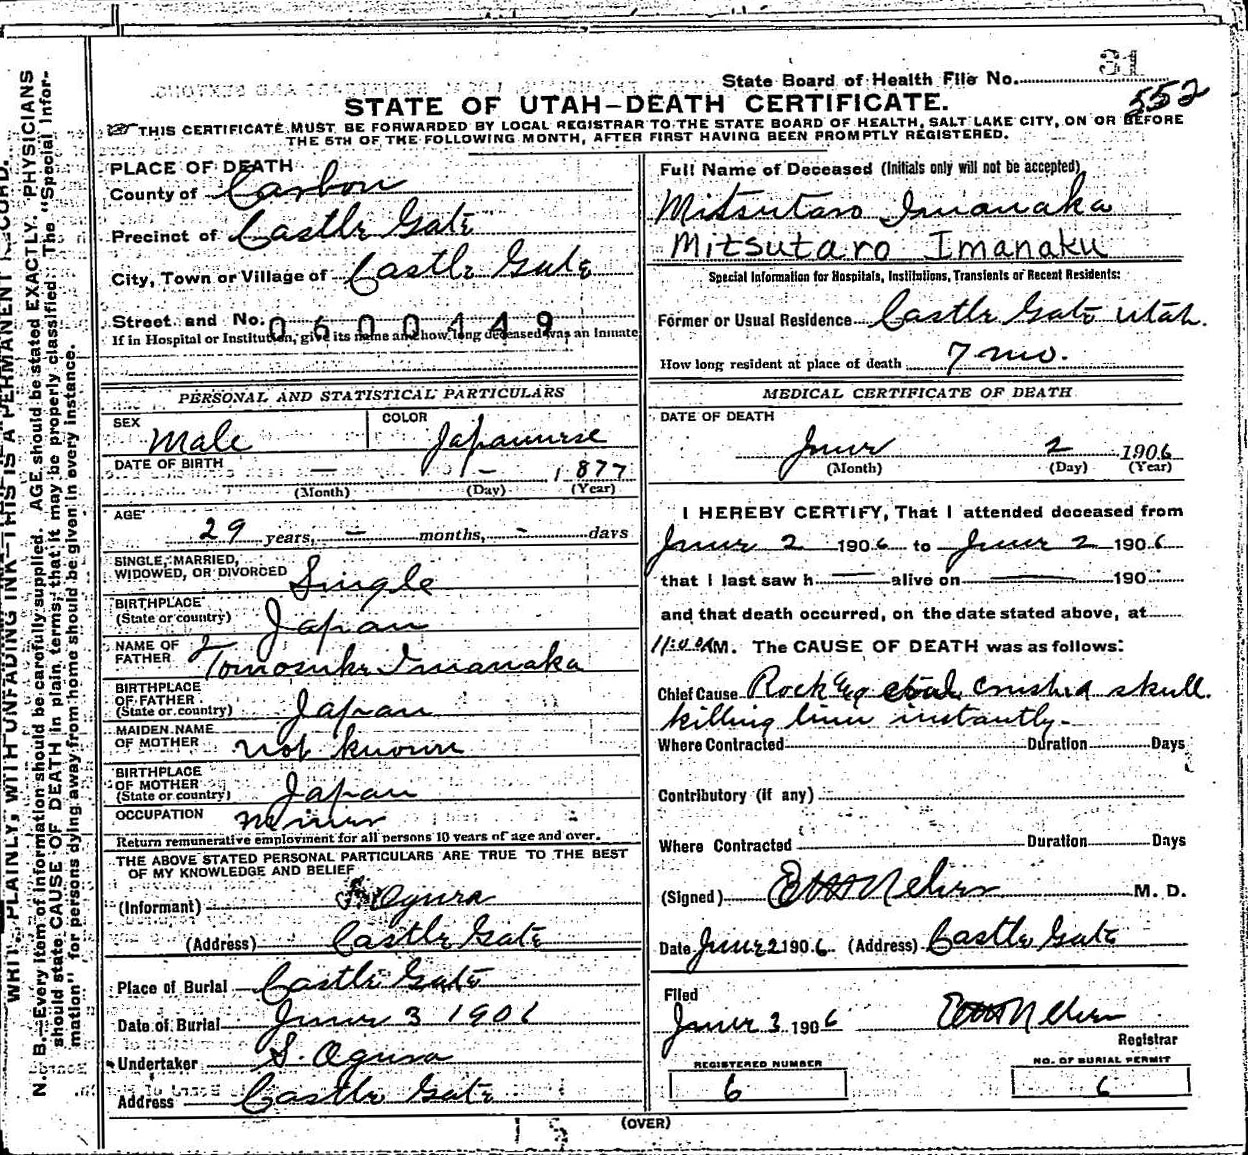 State Board of Health File No. 31
552
STATE OF UTAH—DEATH CERTIFICATE.
THIS CERTIFICATE MUST BE FORWARDED BY LOCAL REGISTRAR TO THE STATE BOARD OF HEALTH, SALT LAKE CITY, ON OR BEFORE
THE 5TH OF THE FOLLOWING MONTH, AFTER FIRST HAVING BEEN PROMPTLY REGISTERED.
PLACE OF DEATH
County of Carbon
Precinct of Castle Gate
City, Town or Village of Castle Gate
Street and No.
0600449
If in Hospital or Institution, give its name and how long deceased was an Inmate
PERSONAL AND STATISTICAL PARTICULARS
SEX Male
COLOR Japanese
DATE OF BIRTH — - 1877
(Month) (Day) (Year)
AGE
29 years, — months, - days
SINGLE, MARRIED,
WIDOWED, OR DIVORCED Single
BIRTHPLACE
(State or country) Japan
NAME OF
FATHER Tomosuke Imanaka
BIRTHPLACE
OF FATHER
(State or country) Japan
MAIDEN NAME
OF MOTHER not known
BIRTHPLACE
OF MOTHER
(State or country) Japan
OCCUPATION Miner
Return remunerative employment for all persons 10 years of age and over.
THE ABOVE STATED PERSONAL PARTICULARS ARE TRUE TO THE BEST
OF MY KNOWLEDGE AND BELIEF
(Informant) S. Ogura
(Address) Castle Gate
Place of Burial Castle Gate
Date of Burial June 3 1906
Undertaker S. Ogura
Address Castle Gate
Full Name of Deceased (Initials only will not be accepted)
Mitsutaro Imanaka
Mitsutaro Imanaku
Special Information for Hospitals, Institutions, Transients or Recent Residents:
Former or Usual Residence Castle Gate Utah.
How long resident at place of death 7 mo.
MEDICAL CERTIFICATE OF DEATH
DATE OF DEATH
June 2 1906
(Month) (Day) (Year)
I HEREBY CERTIFY, That I attended deceased from
June 2 1906 to June 2 1906
that I last saw h — alive on — 190
and that death occurred, on the date stated above, at
11:00 AM. The CAUSE OF DEATH was as follows:
Chief Cause Rock & coal crushed skull.
killing him instantly.
Where Contracted Duration Days
Contributory (if any)
Where Contracted Duration Days
(Signed) M. D.
Date June 2 1906 (Address) Castle Gate
Filed
June 3 1906
Registrar
REGISTERED NUMBER
6
NO. OF BURIAL PERMIT
6
(OVER)
PLAINLY, WITH UNFADING INK—THIS IS A PERMANENT RECORD.
N. B.—Every item of information should be carefully supplied. AGE should be stated EXACTLY. PHYSICIANS
should state CAUSE OF DEATH in plain terms, that it may be properly classified. The "Special Infor-
mation" for persons dying away from home should be given in every instance.